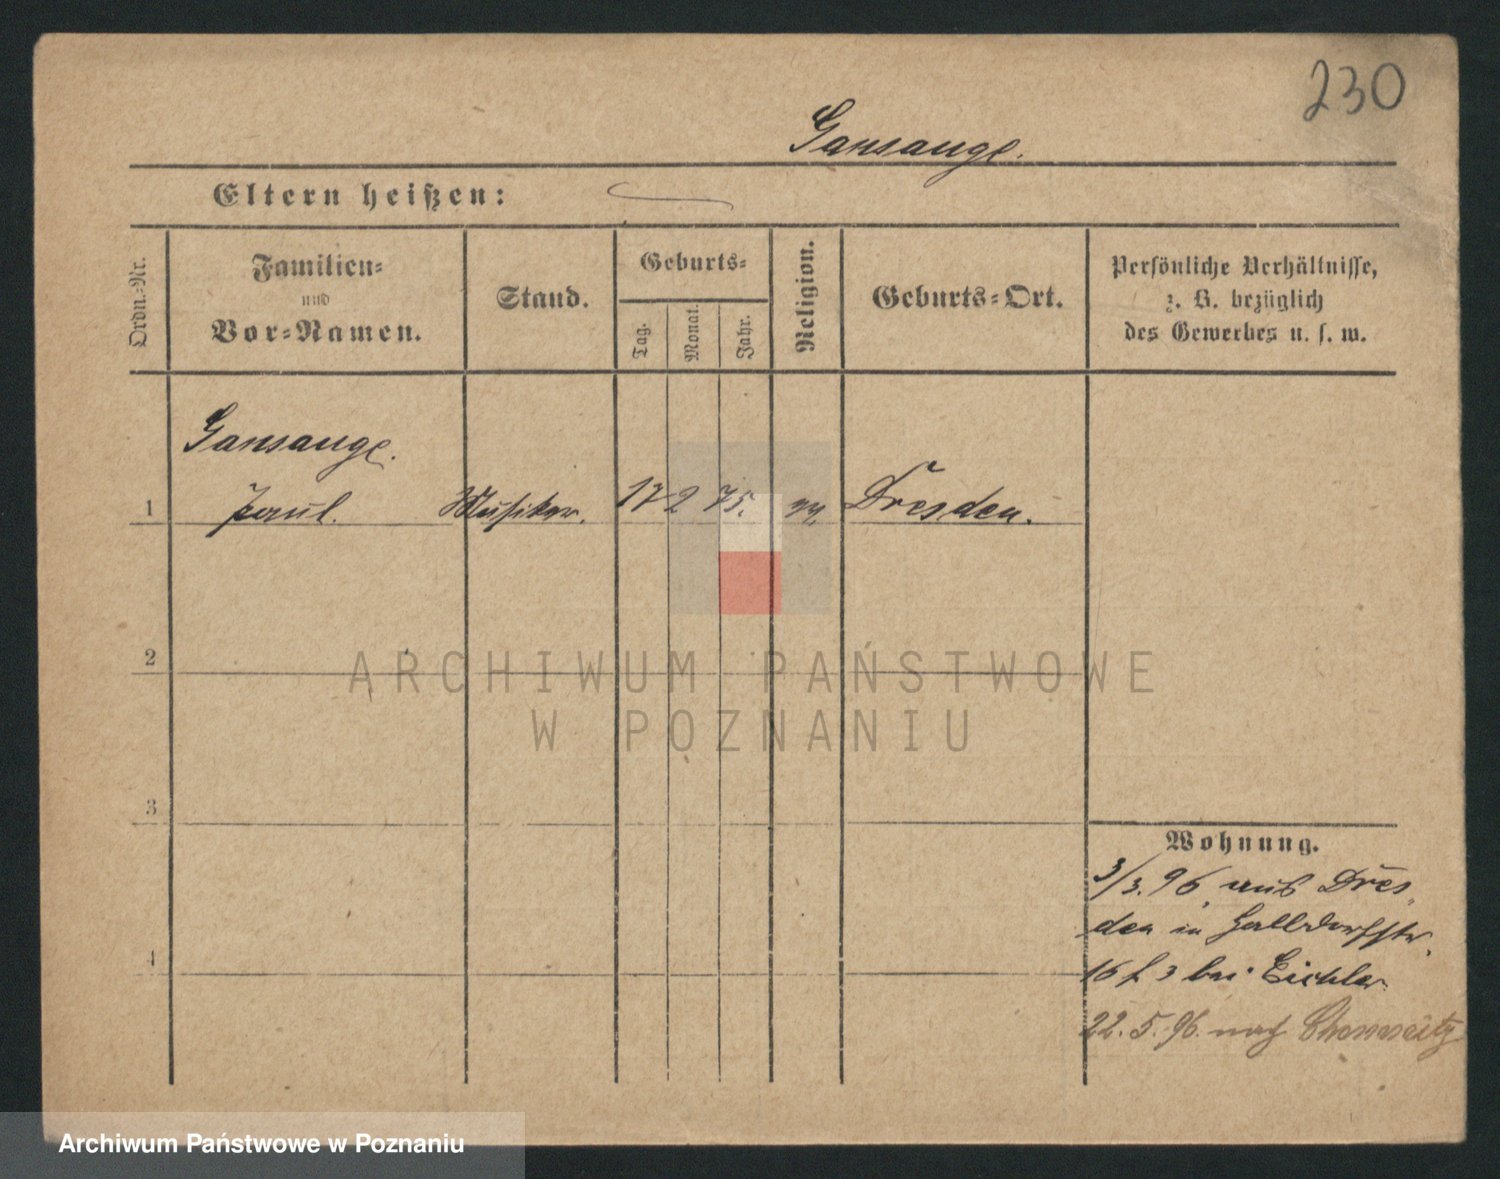 230
Gansauge.
Eltern heißen:
Ordn.-Nr.
Familien-
und
Vor-Namen.
Stand.
Geburts-
Tag.
Monat.
Jahr.
Religion.
Geburts-Ort.
Persönliche Verhältnisse,
z. B. bezüglich
des Gewerbes u. s. w.
Gansauge.
1 Paul. Musiker. 17 2 75. Dresden.
2
3
4
Wohnung.
3/3. 96. aus Dres-
den in Halldorfstr.
16 3 bei Eichler
22. 5. 96. nach Chemnitz
ARCHIWUM PAŃSTWOWE
W POZNANIU
Archiwum Państwowe w Poznaniu